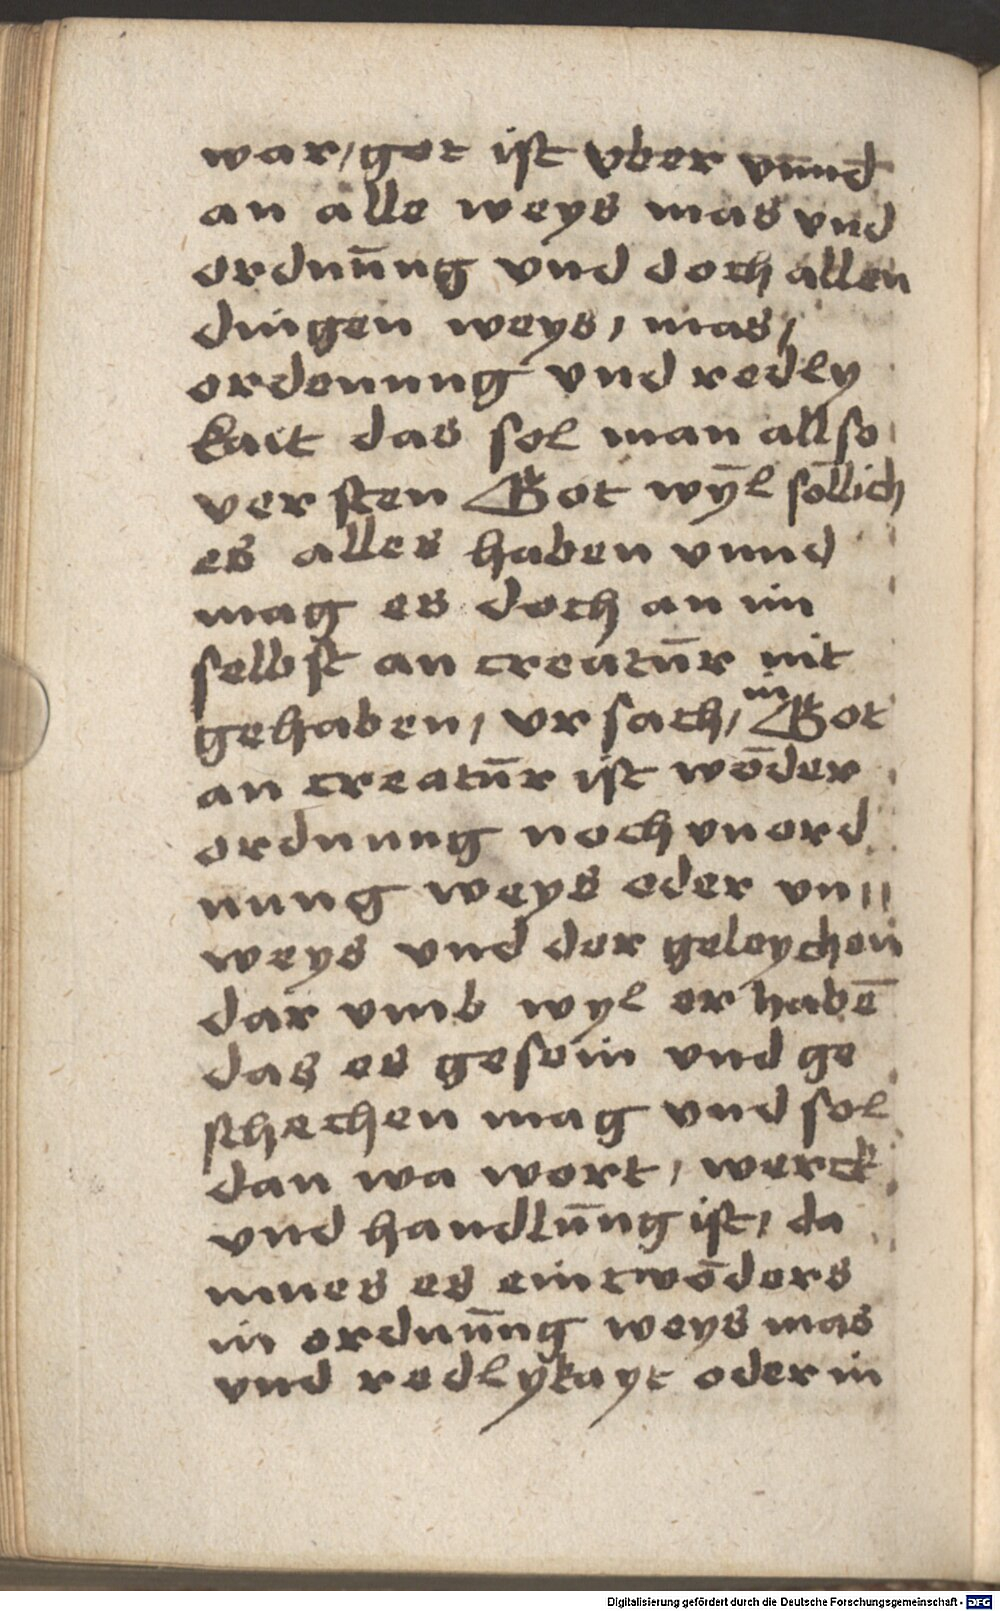 war/got ist vber vn̄nd
an alle weys mas vnd
ordnūng vnd doch allen
dingen weys, mas,
ordenung vnd redly
kait das sol man allso
versten Got wȳl sōllich
es alles haben vnnd
mag es doch an im
selbst an creatūr nit
gehaben, vrsach, in Got
an creatūr ist wōder
ordnung noch vnord
nung weys oder vn,,
weys vnd der geleychen
dar vmb wyl er habē
das es gesein vnd ge
schechen mag vnd sol
dan wa wort, werck
vnd handlūng ist, da
mues es eintwōders
in ordnūng weys mas
vnd redlykayt oder in
Digitalisierung gefördert durch die Deutsche Forschungsgemeinschaft - DFG